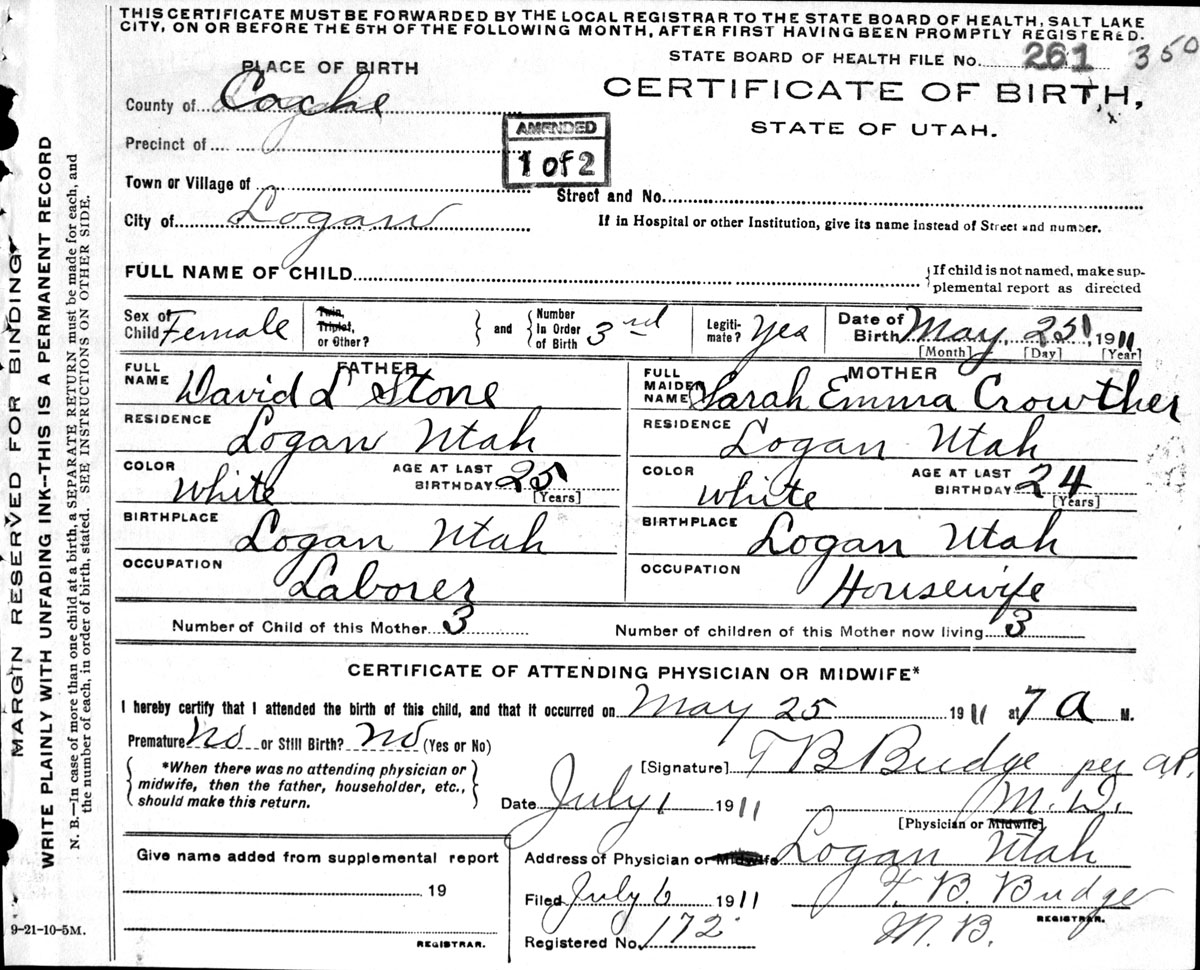 THIS CERTIFICATE MUST BE FORWARDED BY THE LOCAL REGISTRAR TO THE STATE BOARD OF HEALTH, SALT LAKE
CITY, ON OR BEFORE THE 5TH OF THE FOLLOWING MONTH, AFTER FIRST HAVING BEEN PROMPTLY REGISTERED.
STATE BOARD OF HEALTH FILE No. 261 350
PLACE OF BIRTH
CERTIFICATE OF BIRTH,
County of Cache
STATE OF UTAH.
AMENDED
1 of 2
Precinct of
Town or Village of
Street and No.
City of Logan
If in Hospital or other Institution, give its name instead of Street and number.
FULL NAME OF CHILD
If child is not named, make sup-
plemental report as directed
Sex of Child Female
Twin, Triplet, or Other?
and
Number In Order of Birth 3rd
Legiti-mate? Yes
Date of Birth May 25, 1911
[Month] [Day] [Year]
FATHER
FULL NAME David L Stone
RESIDENCE Logan Utah
COLOR White
AGE AT LAST BIRTHDAY 25 [Years]
BIRTHPLACE Logan Utah
OCCUPATION Laborer
MOTHER
FULL MAIDEN NAME Sarah Emma Crowther
RESIDENCE Logan Utah
COLOR White
AGE AT LAST BIRTHDAY 24 [Years]
BIRTHPLACE Logan Utah
OCCUPATION Housewife
Number of Child of this Mother 3
Number of children of this Mother now living 3
CERTIFICATE OF ATTENDING PHYSICIAN OR MIDWIFE*
I hereby certify that I attended the birth of this child, and that it occurred on May 25 1911 at 7 a M.
Premature No or Still Birth? No (Yes or No)
*When there was no attending physician or
midwife, then the father, householder, etc.,
should make this return.
[Signature] T B Budge per a.P.
M.D.
Date July 1 1911
[Physician or Midwife]
Address of Physician or Midwife Logan Utah
Give name added from supplemental report
19
REGISTRAR.
Filed July 6 1911
T. B. Budge
M.D.
REGISTRAR.
Registered No. 172
9-21-10-5M.
MARGIN RESERVED FOR BINDING
WRITE PLAINLY WITH UNFADING INK--THIS IS A PERMANENT RECORD
N. B.—In case of more than one child at a birth, a SEPARATE RETURN must be made for each, and
the number of each, in order of birth, stated. SEE INSTRUCTIONS ON OTHER SIDE.